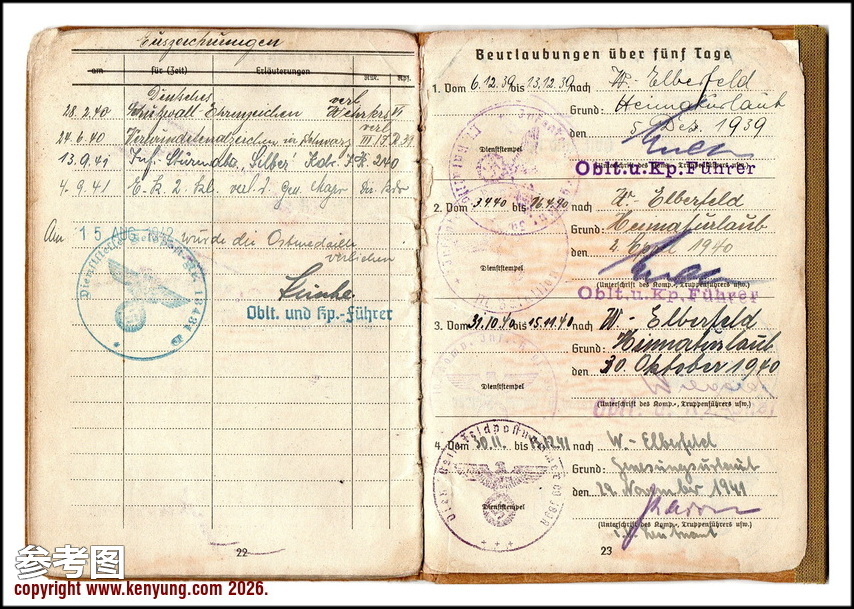 Auszeichnungen
am für (Zeit) Erläuterungen
Deutsches verl
28.2.40 Schutzwall Ehrenzeichen Wehrkrs VI
verl
24.6.40 Verwundetenabzeichen in Schwarz III/J.R.
13.9.41 Inf. Sturmabz. "Silber"
4.9.41 E.K. 2. Kl. verl. d.
Am 15 AUG 1942 wurde die Ostmedaille
verliehen
Oblt. und Kp.-Führer
22
Beurlaubungen über fünf Tage
1. Vom 6.12.39 bis 13.12.39 nach W. Elberfeld
Grund: Heimaturlaub
den 5. Dez. 1939
Dienststempel
(Unterschrift des Komp.-, Truppenführers usw.)
Oblt.u.Kp.Führer
2. Vom 3.4.40 bis 16.4.40 nach W.- Elberfeld
Grund: Heimaturlaub
den 2. April 1940
Dienststempel
(Unterschrift des Komp.-, Truppenführers usw.)
Oblt.u.Kp.Führer
3. Vom 31.10.40 bis 15.11.40 nach W.- Elberfeld
Grund: Heimaturlaub
den 30. Oktober 1940
Dienststempel
(Unterschrift des Komp.-, Truppenführers usw.)
4. Vom 30.11. bis 13.12.41 nach W.-Elberfeld
Grund: Genesungsurlaub
den 29. November 1941
Dienststempel
(Unterschrift des Komp.-, Truppenführers usw.)
Leutnant
23
参考图
copyright www.kenyung.com 2026.